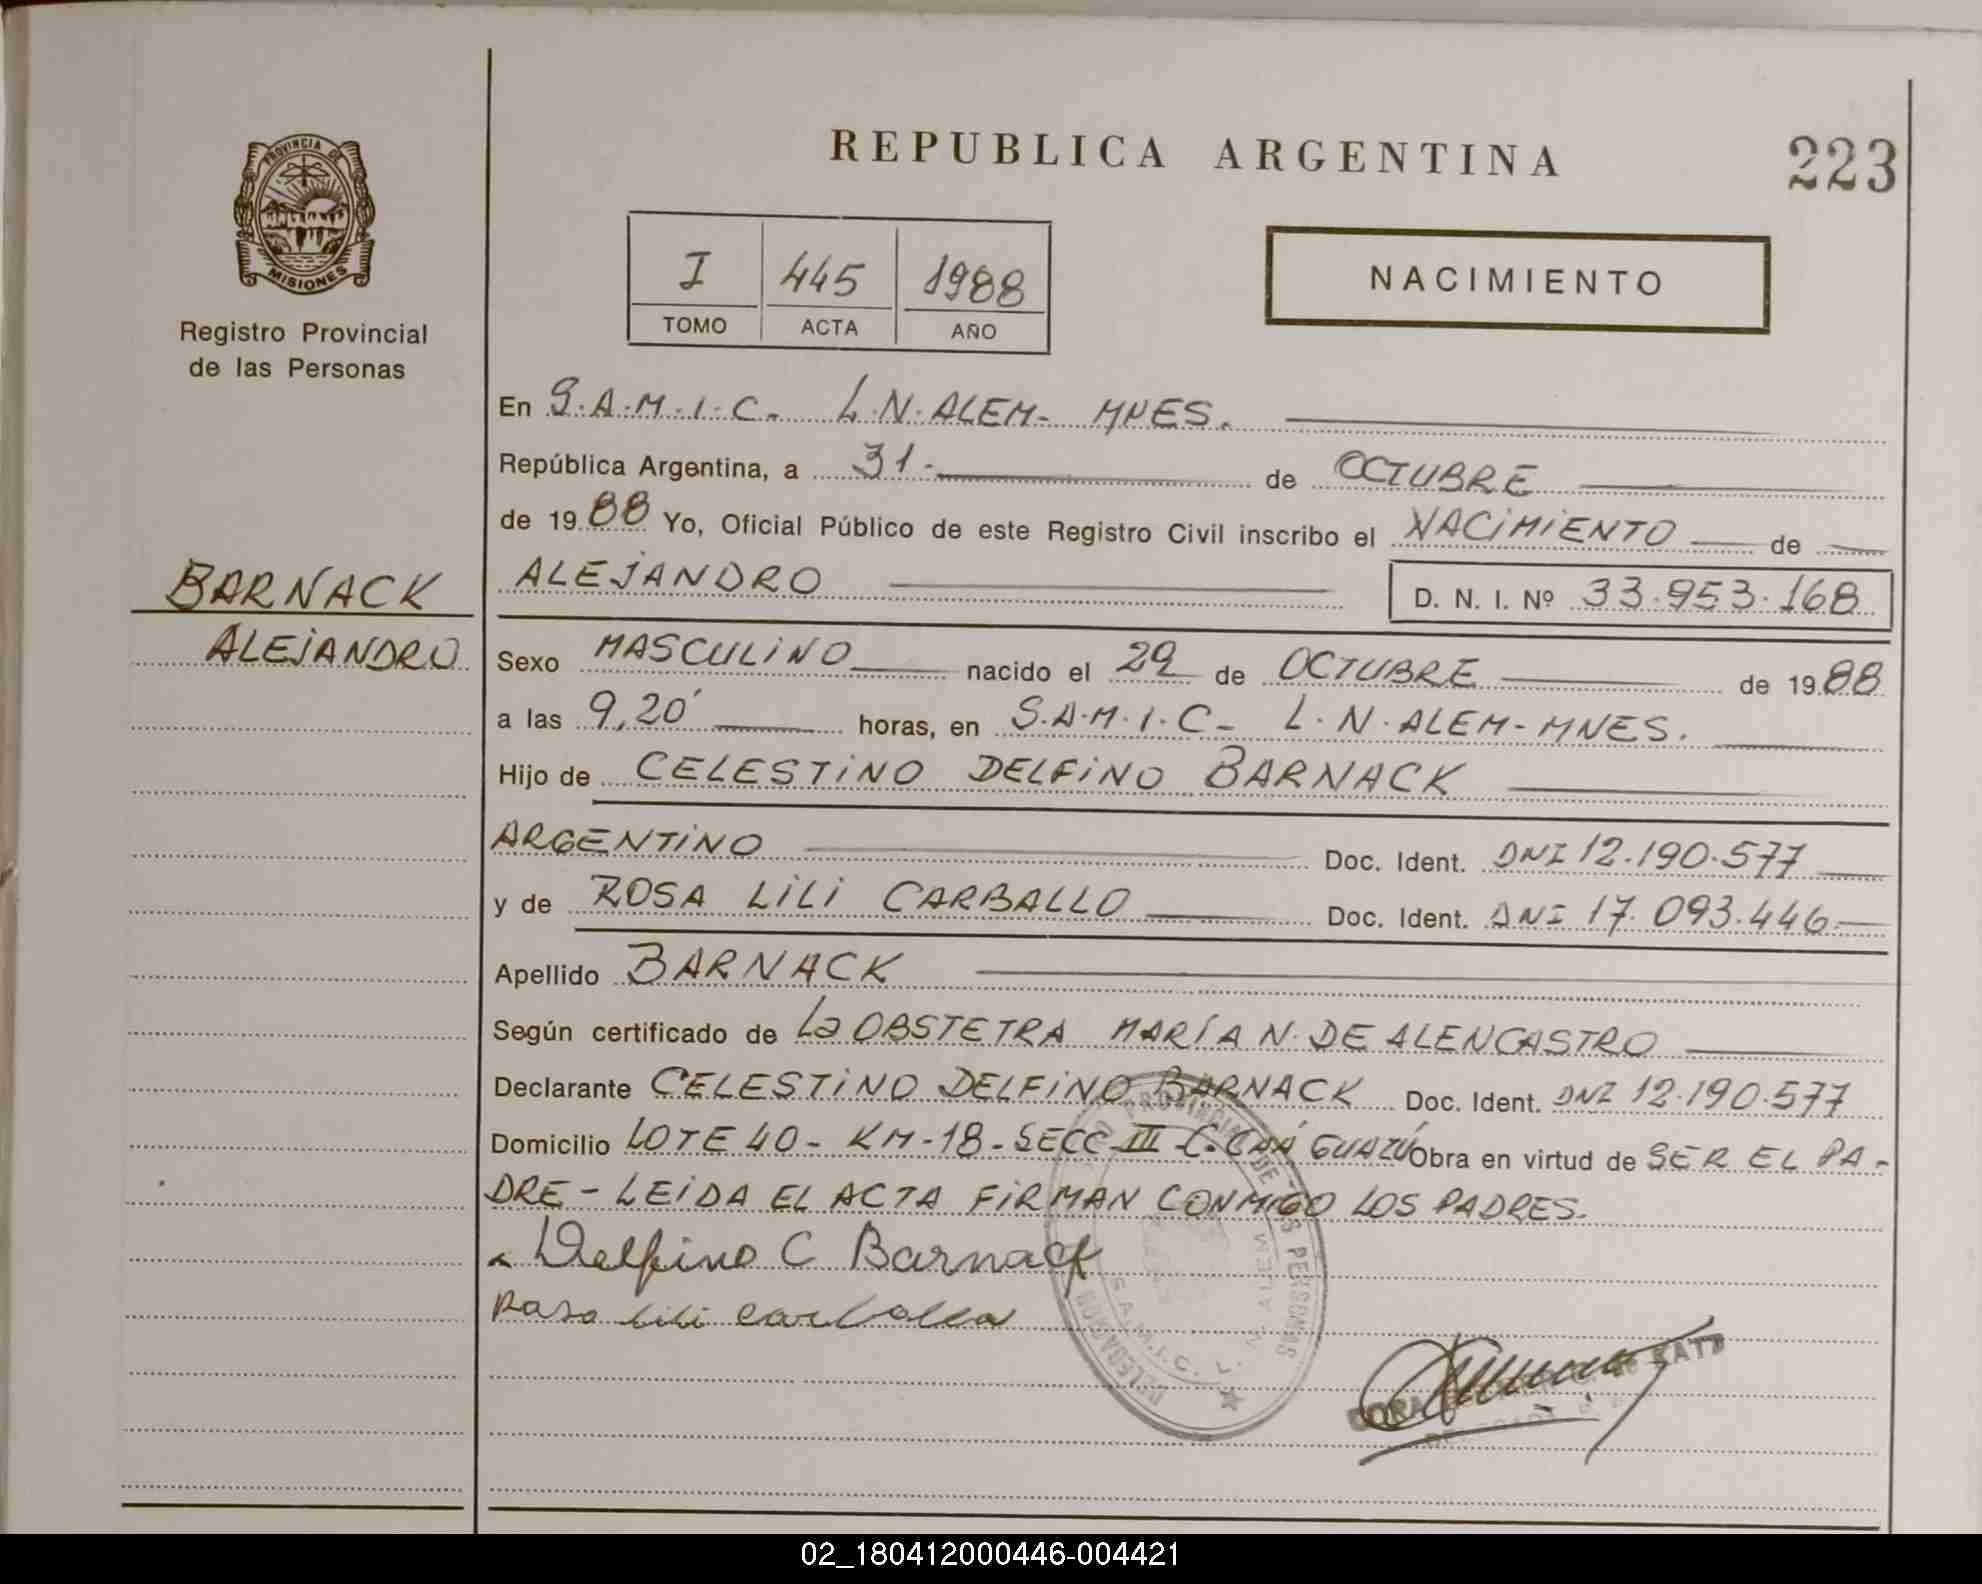 REPUBLICA ARGENTINA
223
PROVINCIA DE
MISIONES
Registro Provincial
de las Personas
I 445 1988
TOMO ACTA AÑO
NACIMIENTO
En S.A.M.I.C. L.N.ALEM- MNES.
República Argentina, a 31- de OCTUBRE
de 1988 Yo, Oficial Público de este Registro Civil inscribo el NACIMIENTO de
BARNACK
ALEJANDRO
ALEJANDRO D. N. I. Nº 33.953.168
Sexo MASCULINO nacido el 29 de OCTUBRE de 1988
a las 9,20' horas, en S.A.M.I.C- L.N.ALEM-MNES.
Hijo de CELESTINO DELFINO BARNACK
ARGENTINO Doc. Ident. DNI 12.190.577
y de ROSA LILI CARBALLO Doc. Ident. DNI 17.093.446
Apellido BARNACK
Según certificado de La OBSTETRA MARÍA N. DE ALENCASTRO
Declarante CELESTINO DELFINO BARNACK Doc. Ident. DNI 12.190.577
Domicilio LOTE 40- KM-18-SECC III C. CAÁ GUAZÚ Obra en virtud de SER EL PA-
DRE - LEIDA EL ACTA FIRMAN CONMIGO LOS PADRES.
Delfino C Barnack
Rosa Lili Carballo
PROVINCIAL DE LAS PERSONAS
DELEGACION
S.A.M.I.C. L. N. ALEM
DORA
02_180412000446-004421